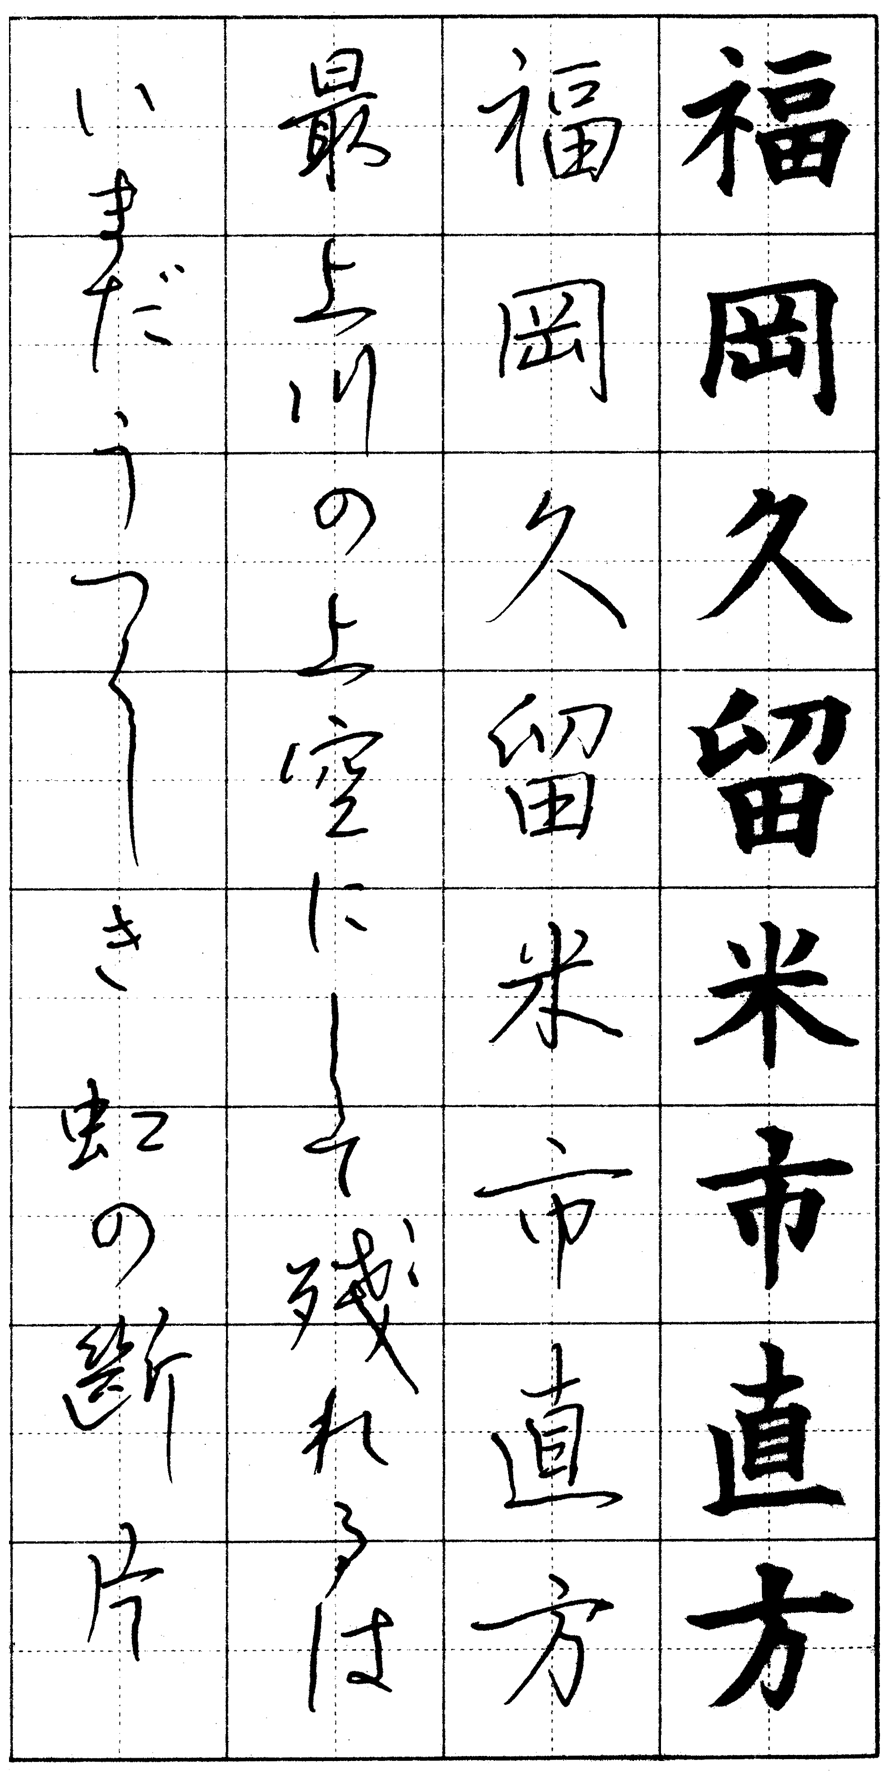 福岡久留米市直方
福岡久留米市直方
最上川の上空にして残れるは
いまだうつくしき虹の断片